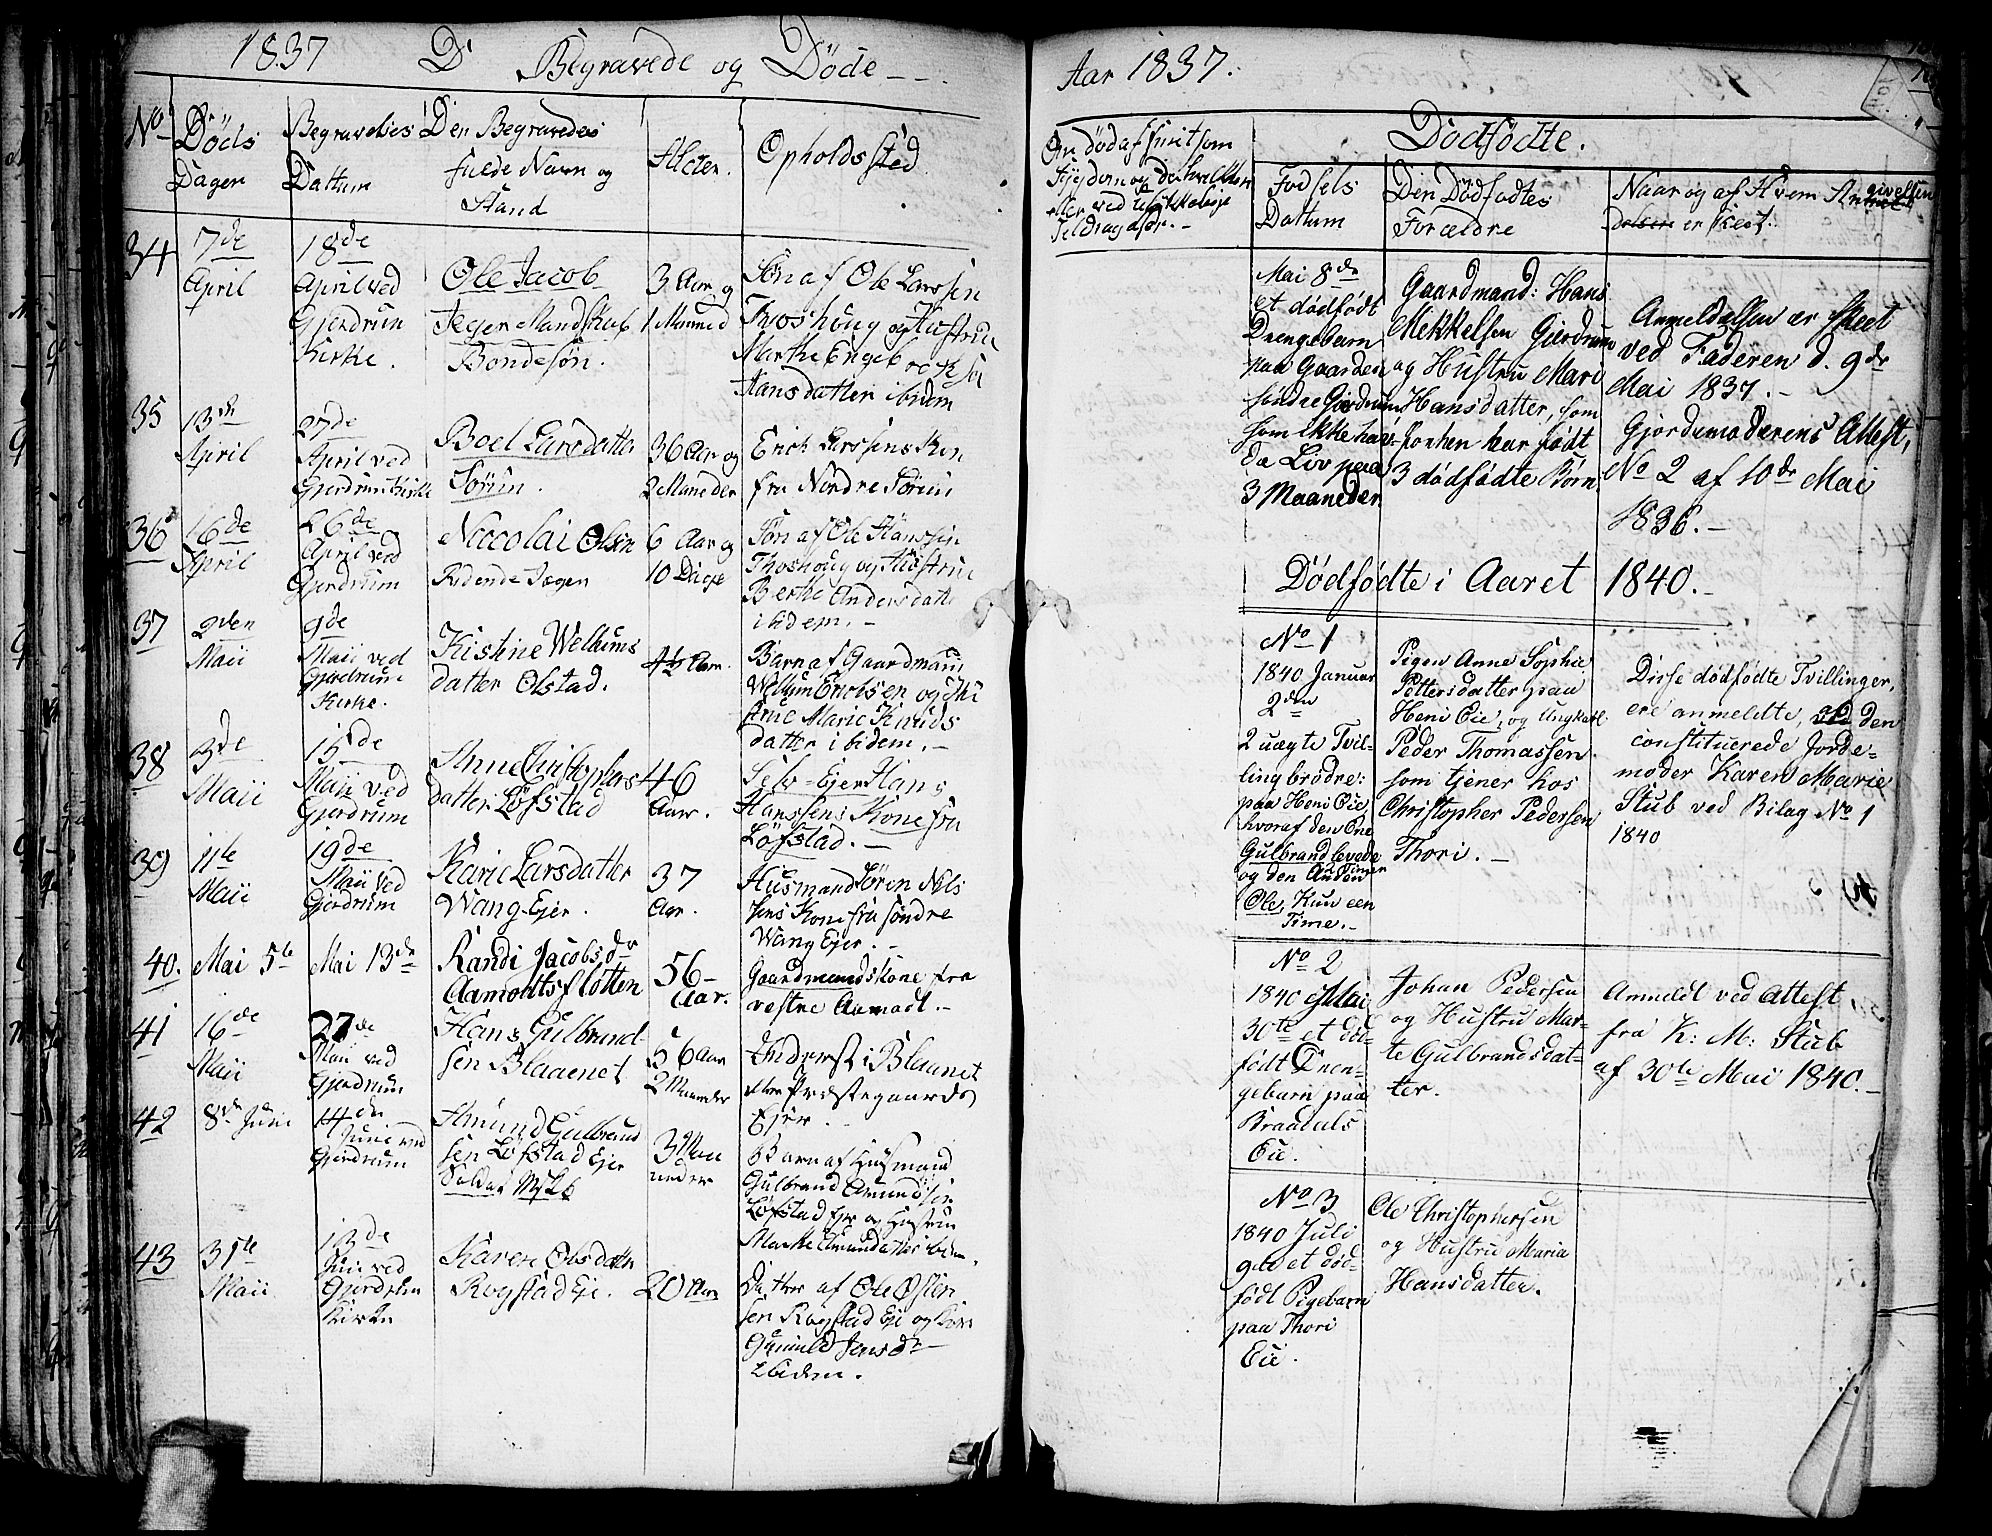 1837 D Begravede og Døde - -
No Døds Dagen
Begravelses Dattum
Den Begravedes fulde Navn og Stand
Alder.
Opholdsted
34
7de April
18de April ved Gjerdrum Kirke.
Ole Jacob
Bondesøn.
3 Aar og 1 Maaned
Søn af Ole Larssen
Hansdatter ibidem
35
13de April
27de April ved Gjerdrum Kirke
Boel Larsdatter
Sørum.
36 Aar og 2 Maaneder
Erich Larssens Kon
fra Nordre Sørum
36
16de April
26de April ved Gjerdrum
Niccolai Olsen
Ridende Jæger
6 Aar og 10 Dage
Søn af Ole Hanssen
Thoshoug og Hustrue
Berthe Andersdatte
ibidem. -
37
2den Maii
9de Maii ved Gjerdrum Kirke.
Kistine Welhums
datter Olstad.
4½ Aar.
Barn af Gaardmann
Welhum Ericksen og Hu
strue Marie Knuds
datter ibidem. -
38
3de Maii
15de Maii ved Gjerdrum
Anne Christophers
datter Løfstad
46 Aar.
Selv-Ejer Hans
Hanssens Kone fra
Løfstad. -
39
11te Maii
19de Maii ved Gjerdrum
Karie Larsdatter
Wang-Ejer.
37 Aar.
Husmand Søren Nils
sens Kone fra søndre
Wang Ejer. -
40.
Mai 5te
Mai 13de
Randi Jacobsdr
Aamohtsflotten
56 - Aar.
Gaardmandskone fra
vestre Aamodt. -
41
16de Maii
27de Maii ved Gjerdrum
Hans Gulbrand-
sen Blaaenet
56 Aar 2 Maaneder
Inderst i Blaanet
Præstegaards
Ejer.
42
8de Juni
14de Juni ved Gjerdrum
Amund Gulbrand
sen Løfstad Ejer
Soldat
3 Maa neder
Barn af Husmand
Gulbrand Amundsen
Løfstad Ejer og Hustrue
Marthe Amundatter ibidem.
43
31te Maii
13de Juni ved Gjerdrum Kirke
Karen Olsdatter
Rogstad Eje.
20 Aar
Datter af Ole Osten
sen Rogstad Eje og Kone
Gunild Jensdr
Ibidem.
Aar 1837.
Dødfødte.
Fødsels Dattum
Den Dødfødtes Forældre
Naar og af Hvem Angivelsen er skeet.
Mai 8de
et dødfødt
Drengebarn
paa Gaarden
søndre Gjerdrum
som ikke hav-
de Liv paa
3 Maaneder
Gaardmand: Hans
Mekkelsen Gjerdrum
og Hustru Mari
Hansdatter, som
forhen har født
3 dødfødte Børn
Anmeldelsen er skeet
ved Faderen d. 9de
Mai 1837. -
Gjordemoderens Attest,
No 2 af 10de Mai
1836. -
Dødfødte i Aaret 1840. -
No 1
1840 Januar
2den
2 uægte Tvil-
lingbrødre:
paa Heni Eie,
hvoraf den Ene
Gulbrand levede
Timer
og den Anden
Ole, Kun een
Time. -
Pigen Anne Sophie
Pettersdatter paa
Heni Eie, og Ungkarl
Peder Thomassen
som tjener hos
Christopher Pedersen
Thori. -
Disse dødfødte Tvillinger,
ere anmeldte, ved den
constituerede Jorde-
moder Karen Marie
Stub ved Bilag No 1
1840
No 2
1840 Mai
30te et død-
født Dren-
gebarn paa
Braadals
Eie.
Johan Pedersen
og Hustru Mar-
te Gulbrandsdat-
ter.
Anmeldt ved Attest
fra K: M: Stub
af 30te Mai 1840. -
No 3
1840 Juli
9de et død-
født Pigebarn
paa Thori
Eie.
Ole Christophersen
og Hustru Maria
Hansdatter.